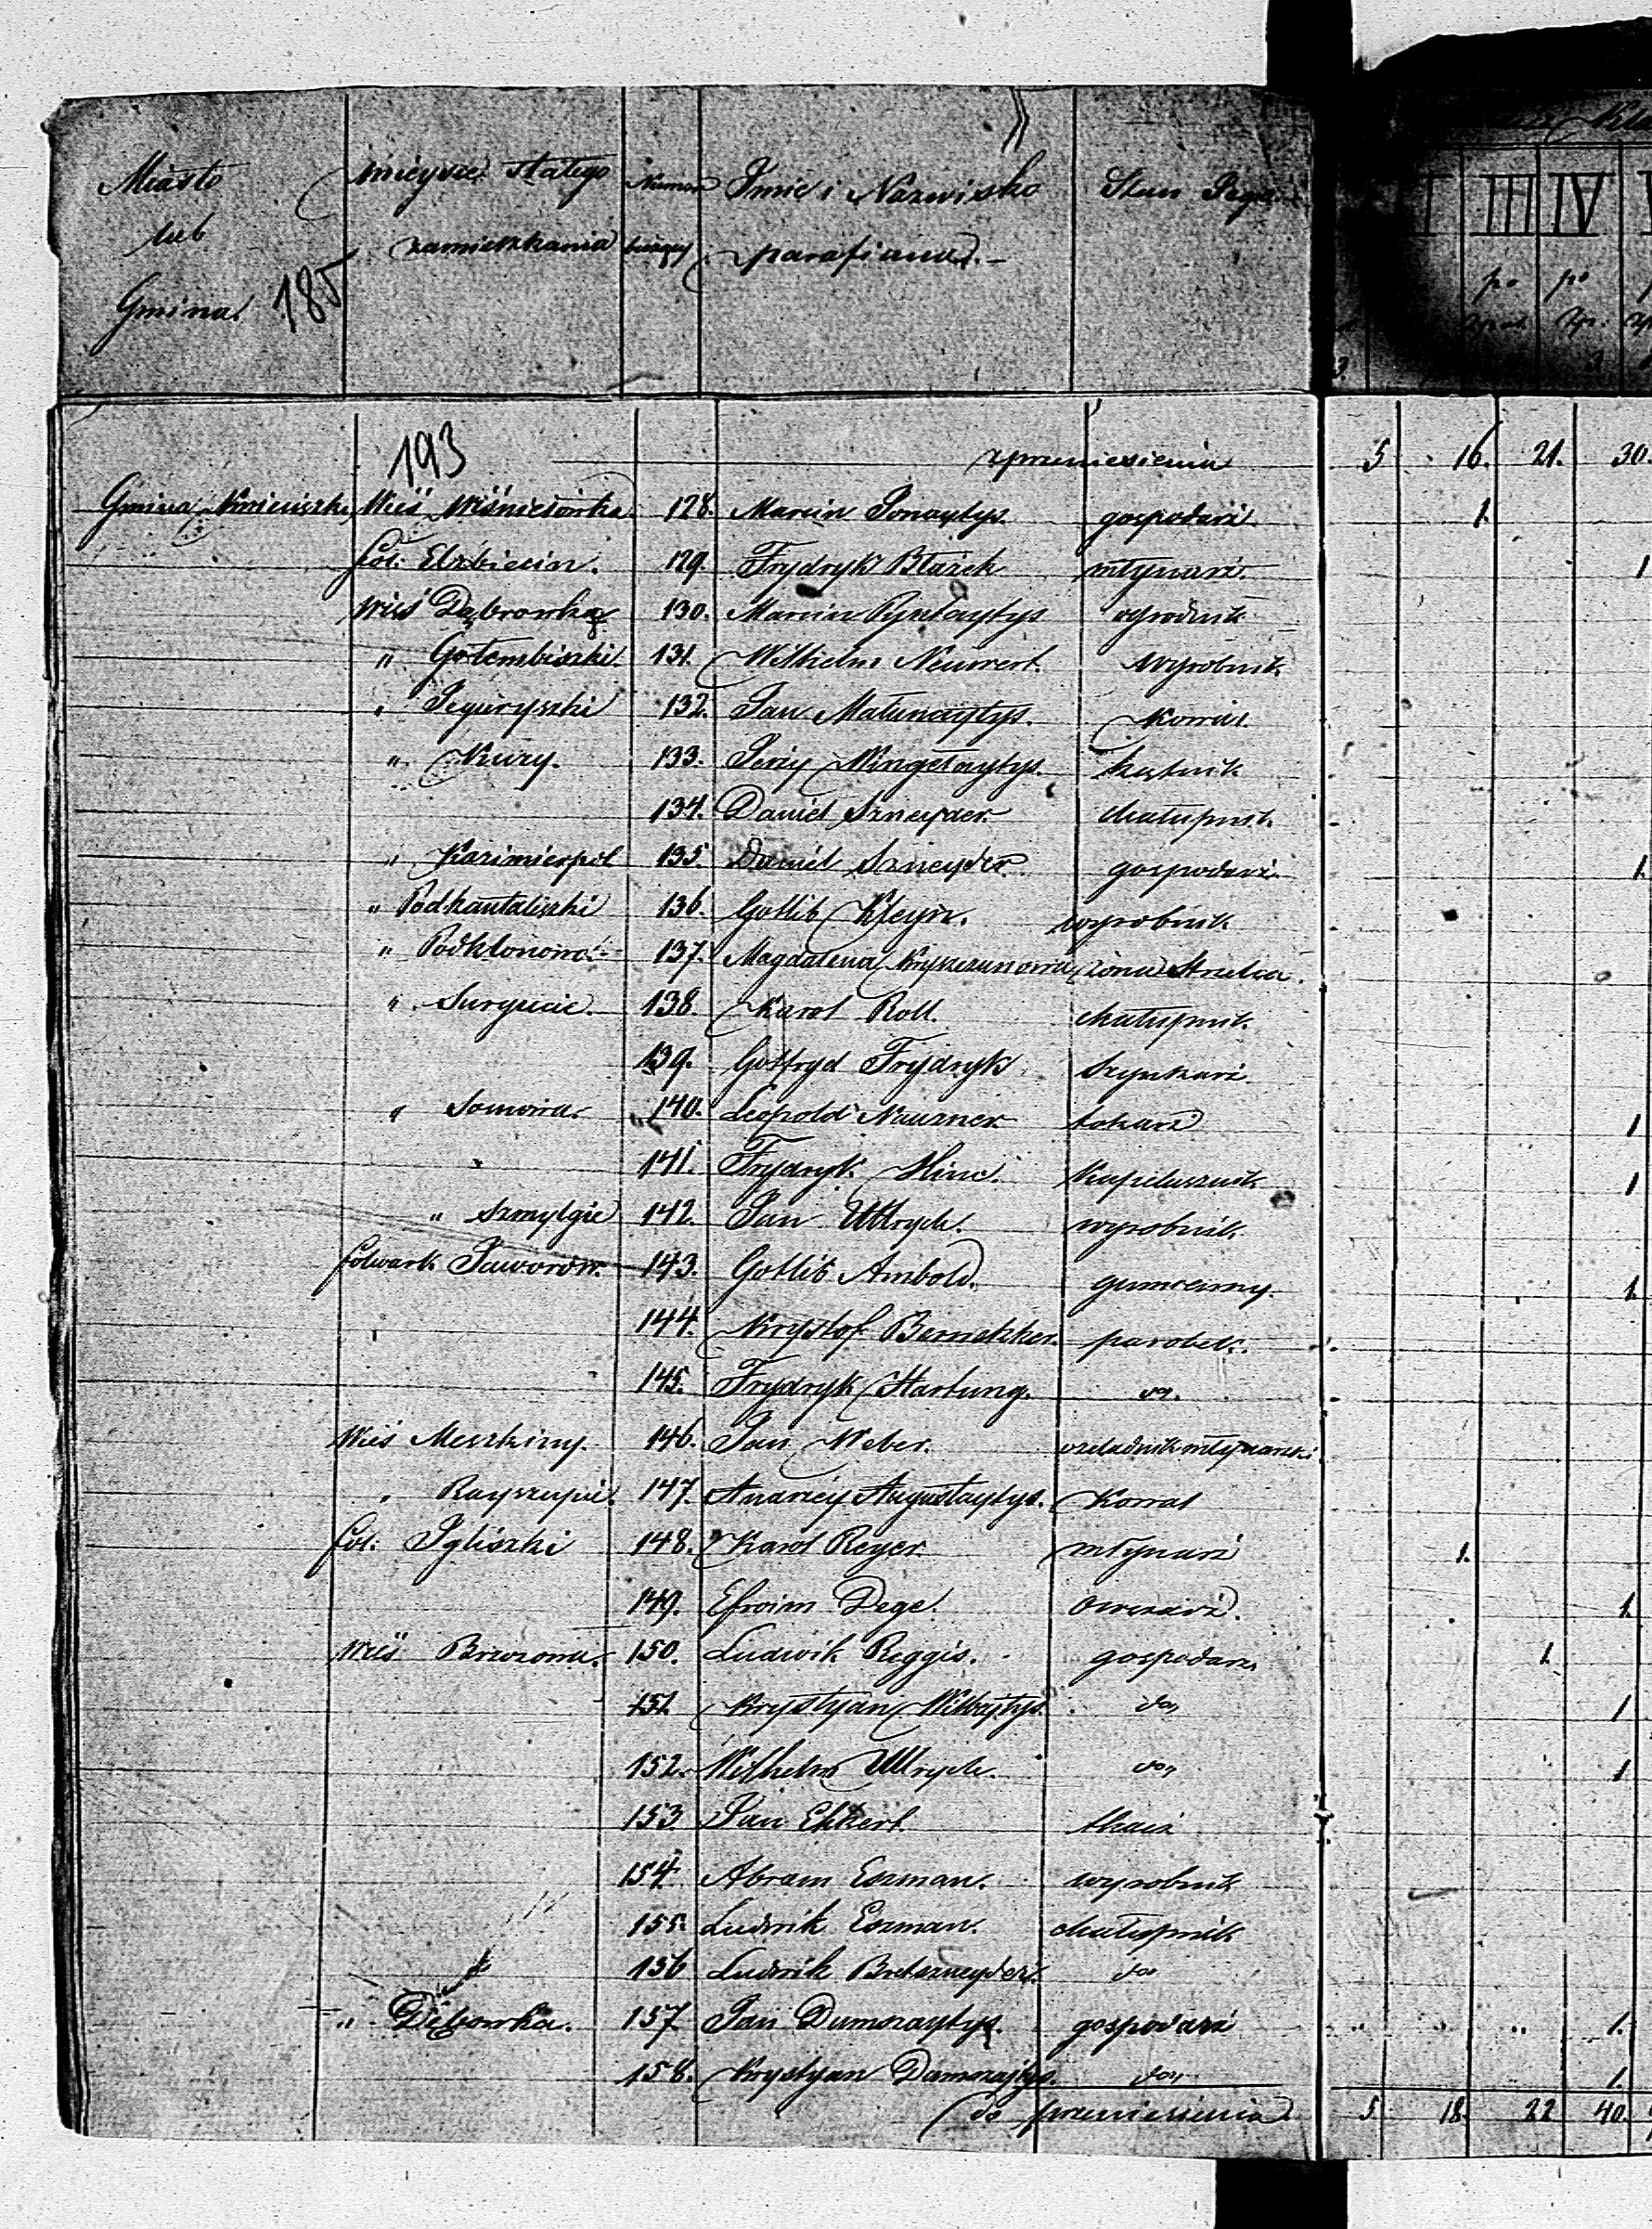 Miasto lub Gmina. 185 | mieysce stałego zamieszkania | Numer bieżący | Imie i Nazwisko parafiana. | Stan Jego | III po | IV po
193 z przeniesienia 5 16. 21. 30.
Gmina Kwieciszki, Wieś Wiśniciówka. 128. Marcin Jonaytys. gospodarz 1.
fol: Elzbiecin. 129. Frydryk Blażek młynarz. 1
Wieś Dąbrowka 130. Marcin ogrodnik
" Gołembiszki. 131. Wilhelm Neuwert. wyrobnik
" 132. Jan Matunaytys. Kowal
" Kury. 133. Jerzy Mingełaytys. kątnik
134. Daniel Szneyder. chałupnik
" Kazimierpol 135. Daniel Szneyder. gospodarz. 1.
" Podkantaliszki 136. Gotlib Kleyn. wyrobnik
" Podklonowa 137. Magdalena żona Strzelca.
" Surgucie. 138. Karol Roll. chałupnik.
139. Gotfryd Frydryk Szynkarz.
" 140. Leopold tokarz 1
141. Frydryk Hinc. Kapelusznik 1
" Szmylgie 142. Jan Ullrych. wyrobnik.
folwark Jaworów. 143. Gotlib Ambold. gumienny. 1.
144. Krystof Bernekker. parobek.
145. Frydryk Hartung. do.
Wieś Meszkiny. 146. Jan Weber. czeladnik młynarski
" 147. Andrzey Augustaytys. Kowal
fol: Igliszki 148. Karol Reyer. młynarz 1.
149. Efroim Dege. Owczarz. 1.
Wieś Brzozowa. 150. Ludwik Reggis. gospodarz 1.
151. Krystyan do 1
152. Wilhelm Ullrych. do 1
153. Jan Ekkert. tkacz
154. Abram Eszman. wyrobnik
155. Ludwik Eszman. chałupnik
156 Ludwik Bretszneyder. do
" Dębowka. 157 Jan Dumszaytys. gospodarz " " " 1.
158. Krystyan Dumszaytys. do 1.
do przeniesienia 5 18. 22 40.